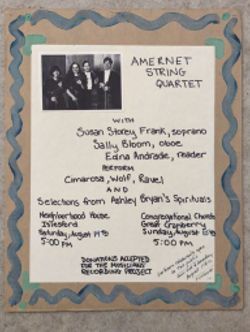 AMERNET
STRING
QUARTET
WITH
Susan Storey Frank, soprano
Sally Bloom, oboe
Edna Andrade, reader
PERFORM
Cimarosa, Wolf, Ravel
AND
Selections from Ashley Bryan's Spirituals
Neighborhood House
Islesford
Saturday, August
5:00 PM
Congregational Church
Great Cranberry
Sunday, August
5:00 PM
DONATIONS ACCEPTED
FOR THE MUSICIANS
RECORDING PROJECT